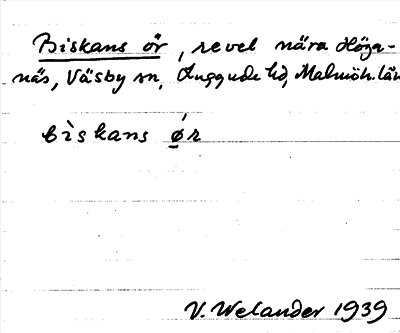 Biskans ör, revel nära Höga-
näs, Väsby sn, Luggude hd, Malmöh. län
bìskans ǿr
V. Welander 1939